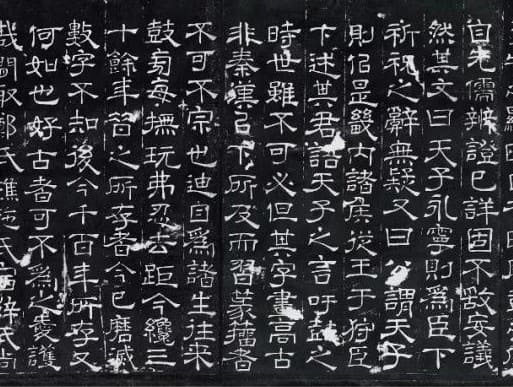 自先儒辨證已詳固不敢妄議
然其文曰天子永寧則爲臣下
祈祝之辭無疑又曰公謂天子
則佀是畿内諸侯從王于狩臣
下述其君語天子之言吁鼓之
時世雖不可必但其字畫高古
非秦漢㠯下所及而習篆籀者
不可不宗也迪自爲諸生往來
鼓旁每撫玩弗忍去距今纔三
十餘年昔之所存者今已磨滅
數字不知後今千百年所存又
何如也好古者可不爲之愛護
哉閒取鄭氏樵施氏宿薛氏尚